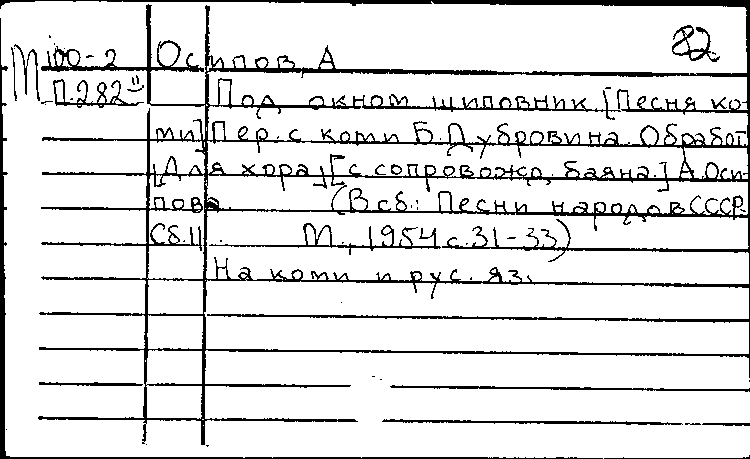 82
М 100-2 Осипов, А
П.282"
Под окном шиповник. [Песня ко-
ми] Пер. с коми Б. Дубровина. Обработ
[Для хора] [с сопровожд. баяна.] А. Оси-
пова. (В сб.: Песни народов СССР.
Сб. 11. М., 1954 с. 31-33)
На коми и рус. яз.